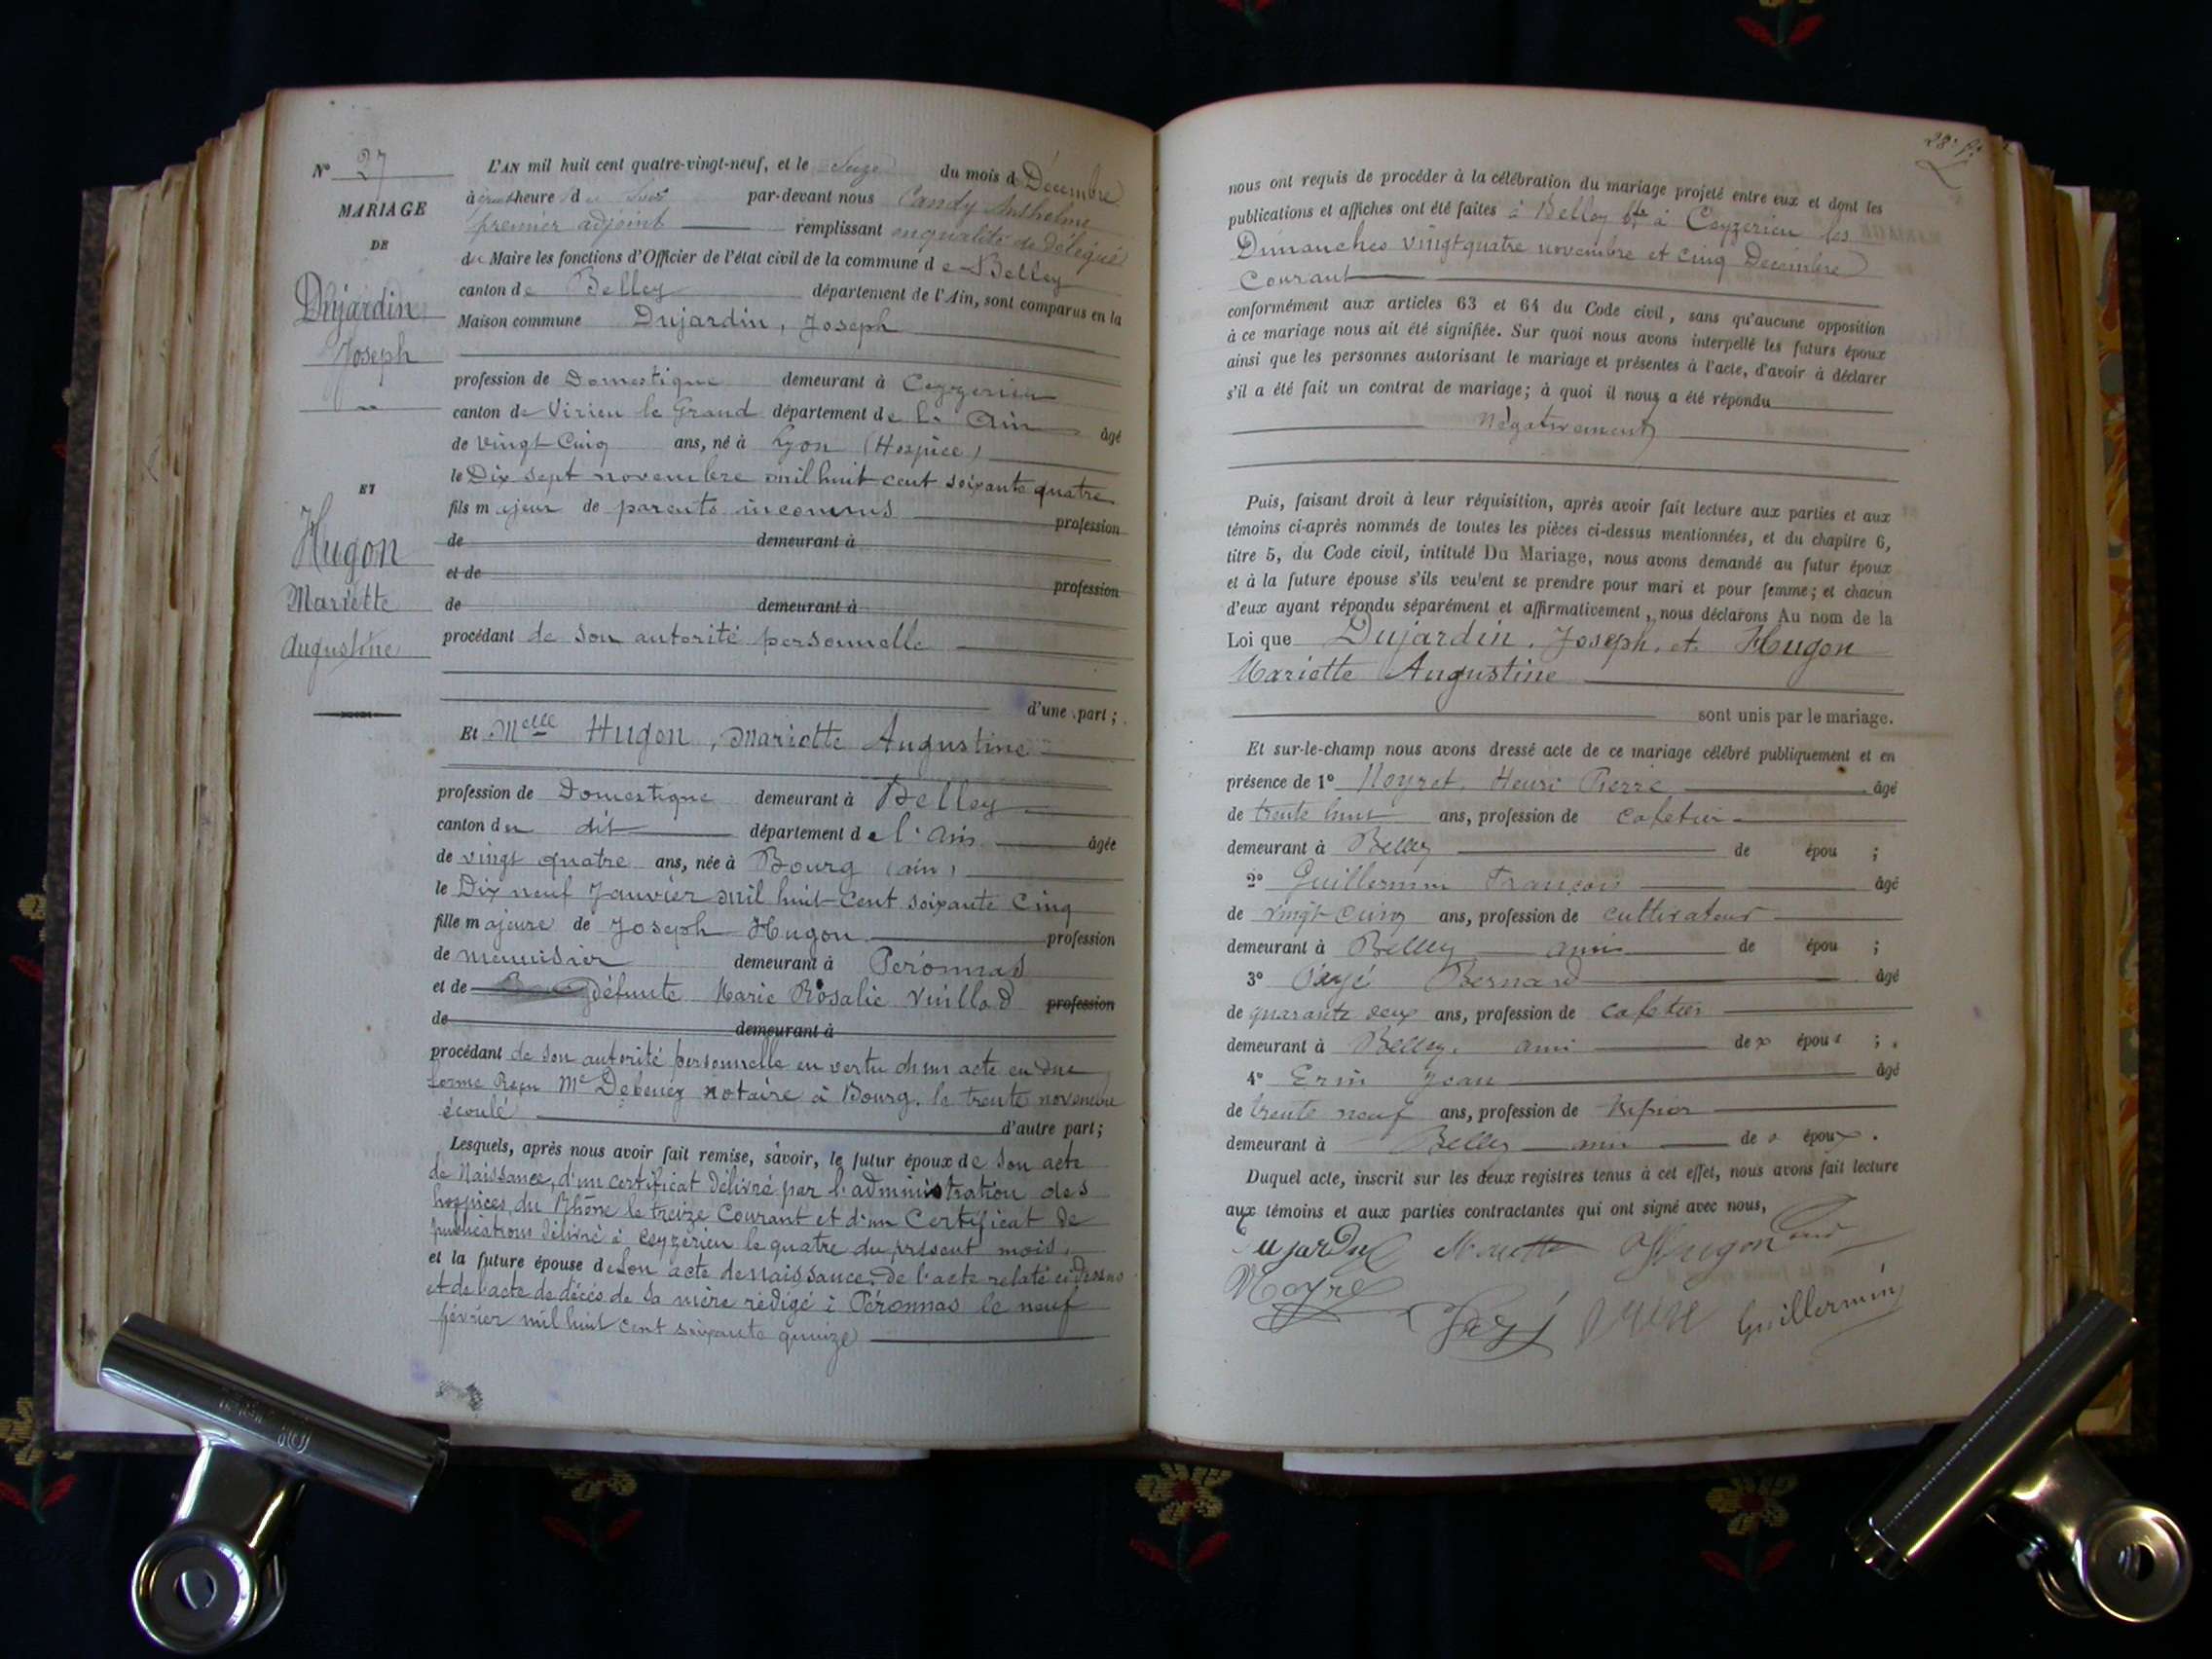 N° 27
MARIAGE
DE
Dujardin
Joseph
ET
Hugon
Mariette
Augustine
L'AN mil huit cent quatre-vingt-neuf, et le du mois d Décembre
à heure d par-devant nous Candy Anthelme
premier adjoint remplissant en qualité de délégué
du Maire les fonctions d'Officier de l'état civil de la commune de Belley
canton de Belley département de l'Ain, sont comparus en la
Maison commune Dujardin, Joseph
profession de Domestique demeurant à Ceyzerieu
canton de Virieu le Grand département de l'Ain âgé
de vingt Cinq ans, né à Lyon (Hospice)
le Dix sept novembre mil huit cent soixante quatre
fils majeur de parents inconnus profession
de demeurant à
et de profession
de demeurant à
procédant de son autorité personnelle
d'une part;
Et Melle Hugon, Mariette Augustine
profession de Domestique demeurant à Belley
canton du dit département de l'Ain âgée
de vingt quatre ans, née à Bourg (ain)
le Dix neuf Janvier mil huit Cent soixante Cinq
fille majeure de Joseph Hugon profession
de menuisier demeurant à Péronnas
et de défunte Marie Rosalie Vuillod profession
de demeurant à
procédant de son autorité personnelle en vertu d'un acte en due
forme Reçu Me Debeney notaire à Bourg, le trente novembre
écoulé d'autre part;
Lesquels, après nous avoir fait remise, savoir, le futur époux de Son acte
de Naissance, d'un certificat délivré par l'administration des
hospices du Rhône le treize Courant et d'un Certificat de
publications délivré à Ceyzerieu le quatre du présent mois,
et la future épouse de son acte de naissance, de l'acte relaté ci dessus
et de l'acte de décès de sa mère rédigé à Péronnas le neuf
février mil huit cent soixante quinze
28
nous ont requis de procéder à la célébration du mariage projeté entre eux et dont les
publications et affiches ont été faites à Belley et à Ceyzerieu les
Dimanches vingt quatre novembre et cinq Décembre
Courant
conformément aux articles 63 et 64 du Code civil, sans qu'aucune opposition
à ce mariage nous ait été signifiée. Sur quoi nous avons interpellé les futurs époux
ainsi que les personnes autorisant le mariage et présentes à l'acte, d'avoir à déclarer
s'il a été fait un contrat de mariage; à quoi il nous a été répondu
Négativement
Puis, faisant droit à leur réquisition, après avoir fait lecture aux parties et aux
témoins ci-après nommés de toutes les pièces ci-dessus mentionnées, et du chapitre 6,
titre 5, du Code civil, intitulé Du Mariage, nous avons demandé au futur époux
et à la future épouse s'ils veulent se prendre pour mari et pour femme; et chacun
d'eux ayant répondu séparément et affirmativement, nous déclarons Au nom de la
Loi que Dujardin, Joseph, et Hugon
Mariette Augustine
sont unis par le mariage.
Et sur-le-champ nous avons dressé acte de ce mariage célébré publiquement et en
présence de 1° Noyret, Henri Pierre âgé
de trente huit ans, profession de cafetier
demeurant à Belley de épou ;
2° Guillermin François âgé
de vingt cinq ans, profession de cultivateur
demeurant à Belley ami de épou ;
3° Bernard âgé
de quarante deux ans, profession de cafetier
demeurant à Belley, ami de épou ;
4° Jean âgé
de trente neuf ans, profession de
demeurant à Belley ami de époux.
Duquel acte, inscrit sur les deux registres tenus à cet effet, nous avons fait lecture
aux témoins et aux parties contractantes qui ont signé avec nous,
Dujardin Mariette Hugon
Guillermin